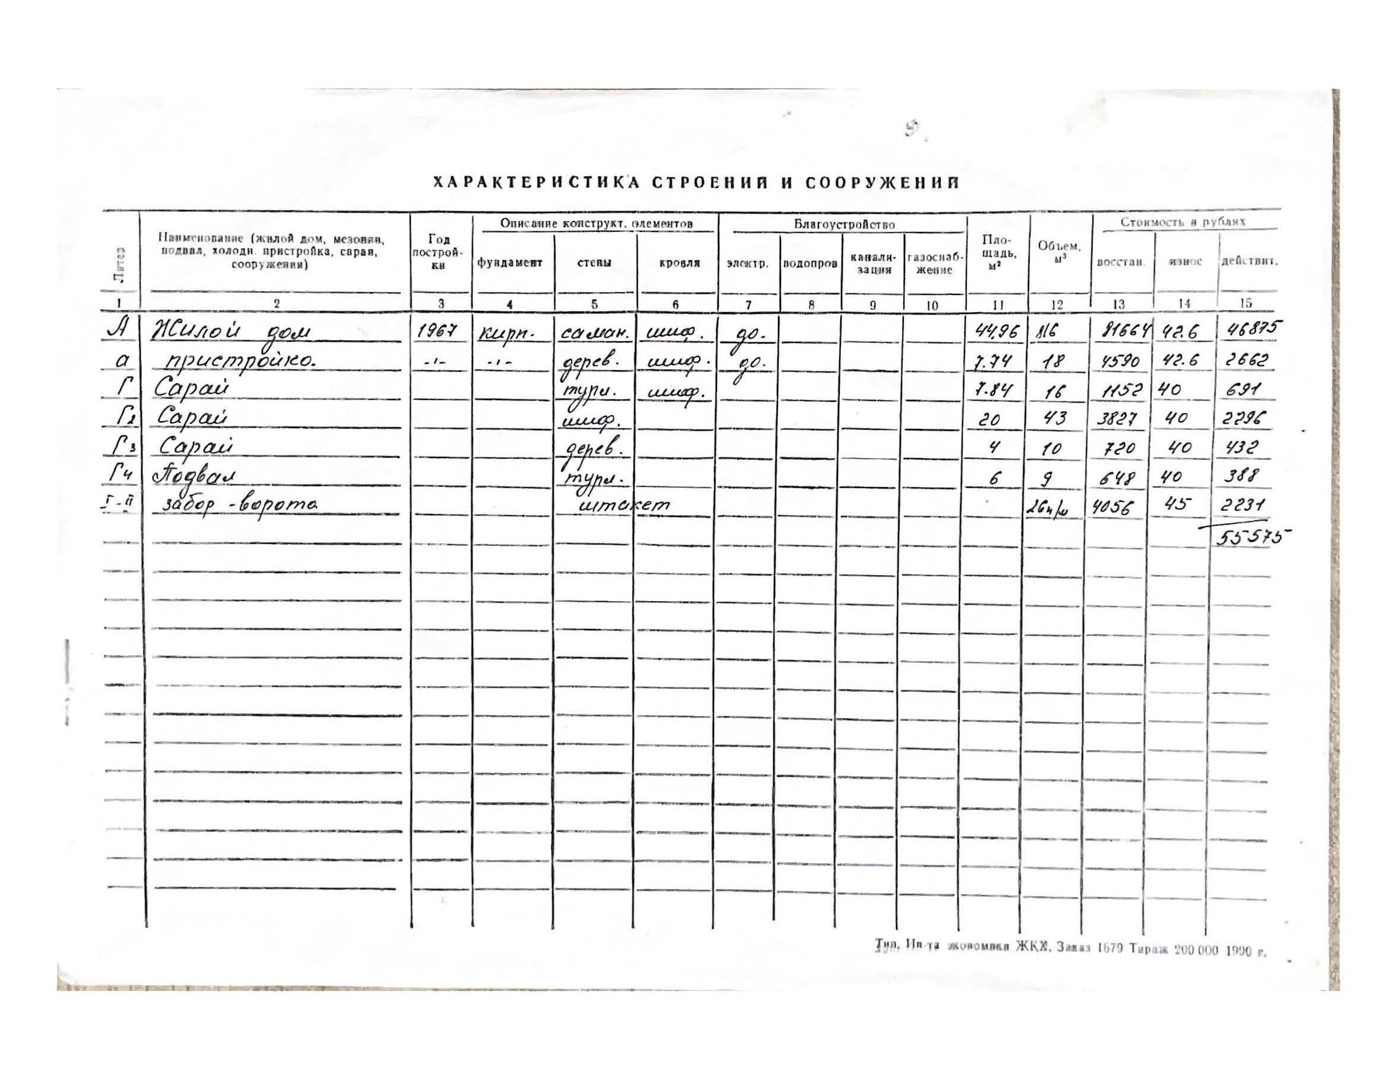 9.
ХАРАКТЕРИСТИКА СТРОЕНИЙ И СООРУЖЕНИЙ
Литер
Наименование (жилой дом, мезонин, подвал, холодн. пристройка, сарай, сооружения)
Год построй-ки
Описание конструкт. элементов
фундамент стены кровля
Благоустройство
электр. водопров канали-зация газоснаб-жение
Пло-щадь, м²
Объем, м³
Стоимость в рублях
восстан. износ действит.
1 2 3 4 5 6 7 8 9 10 11 12 13 14 15
А Жилой дом 1967 кирп. саман. шиф. до. 44,96 116 81664 42.6 46875
а пристройко. -"- -"- дерев. шиф. до. 7.74 18 4590 42.6 2662
Г Сарай турл. шиф. 7.84 16 1152 40 691
Г2 Сарай шиф. 20 43 3827 40 2296
Г3 Сарай дерев. 4 10 720 40 432
Г4 Подвал турл. 6 9 648 40 388
I-II забор-ворота штакет 26п/м 4056 45 2231
55575
Тип. Ин-та экономики ЖКХ. Заказ 1679 Тираж 200 000 1990 г.